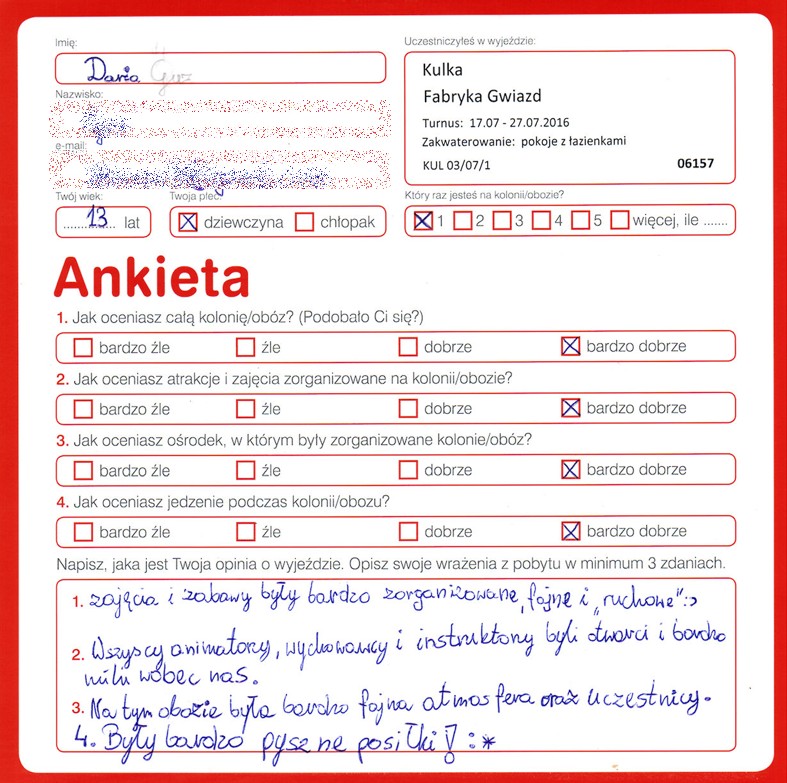 Imię:
Daria
Nazwisko:
e-mail:
Twój wiek:
13 lat
Twoja płeć:
dziewczyna chłopak
Uczestniczyłeś w wyjeździe:
Kulka
Fabryka Gwiazd
Turnus: 17.07 - 27.07.2016
Zakwaterowanie: pokoje z łazienkami
KUL 03/07/1 06157
Który raz jesteś na kolonii/obozie?
1 2 3 4 5 więcej, ile .......
Ankieta
1. Jak oceniasz całą kolonię/obóz? (Podobało Ci się?)
bardzo źle źle dobrze bardzo dobrze
2. Jak oceniasz atrakcje i zajęcia zorganizowane na kolonii/obozie?
bardzo źle źle dobrze bardzo dobrze
3. Jak oceniasz ośrodek, w którym były zorganizowane kolonie/obóz?
bardzo źle źle dobrze bardzo dobrze
4. Jak oceniasz jedzenie podczas kolonii/obozu?
bardzo źle źle dobrze bardzo dobrze
Napisz, jaka jest Twoja opinia o wyjeździe. Opisz swoje wrażenia z pobytu w minimum 3 zdaniach.
1. zajęcia i zabawy były bardzo zorganizowane, fajne i „ruchowe” :>
2. Wszyscy animatorzy, wychowawcy i instruktorzy byli otwarci i bardzo
mili wobec nas.
3. Na tym obozie była bardzo fajna atmosfera oraz uczestnicy.
4. Były bardzo pyszne posiłki! :*